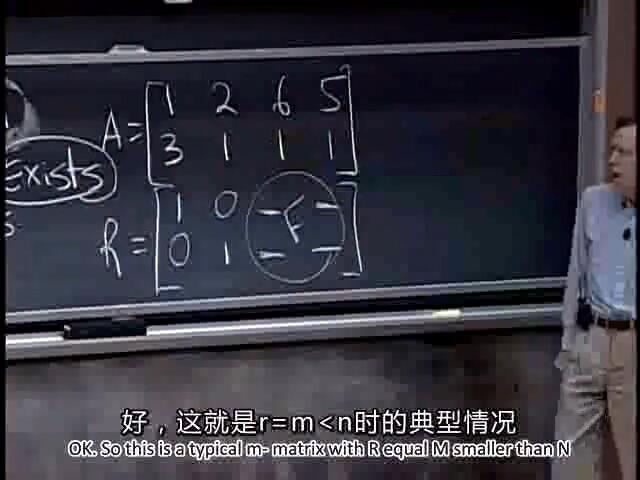 A = [ 1 2 6 5
3 1 1 1 ]
Exists
R = [ 1 0 _ F _
0 1 _ _ ]
好，这就是r=m<n时的典型情况
OK. So this is a typical m- matrix with R equal M smaller than N